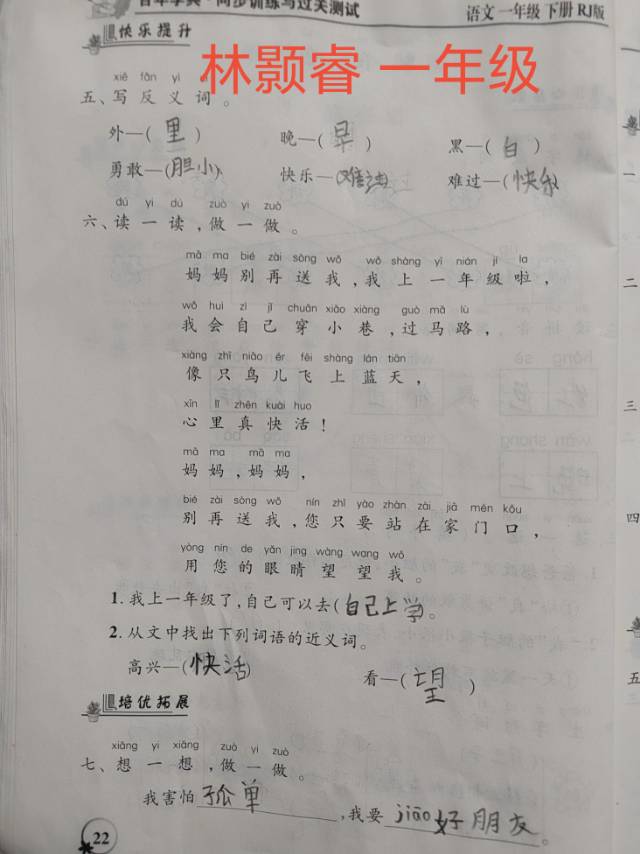 百年学典·同步训练与过关测试
语文 一年级 下册 RJ版
快乐提升
林颢睿 一年级
xiě fǎn yì
五、写反义词。
外—(里) 晚—(早) 黑—(白)
勇敢—(胆小) 快乐—(难过) 难过—(快乐)
dú yi dú zuò yi zuò
六、读一读，做一做。
mā ma bié zài sòng wǒ wǒ shàng yī nián jí la
妈妈别再送我，我上一年级啦，
wǒ huì zì jǐ chuān xiǎo xiàng guò mǎ lù
我会自己穿小巷，过马路，
xiàng zhī niǎo ér fēi shàng lán tiān
像只鸟儿飞上蓝天，
xīn lǐ zhēn kuài huo
心里真快活！
mā ma mā ma
妈妈，妈妈，
bié zài sòng wǒ nín zhǐ yào zhàn zài jiā mén kǒu
别再送我，您只要站在家门口，
yòng nín de yǎn jing wàng wang wǒ
用您的眼睛望望我。
1.我上一年级了，自己可以去(自己上学。
2.从文中找出下列词语的近义词。
高兴—(快活) 看—(望)
培优拓展
xiǎng yi xiǎng zuò yi zuò
七、想一想，做一做。
我害怕孤单，我要jiāo好朋友。
22